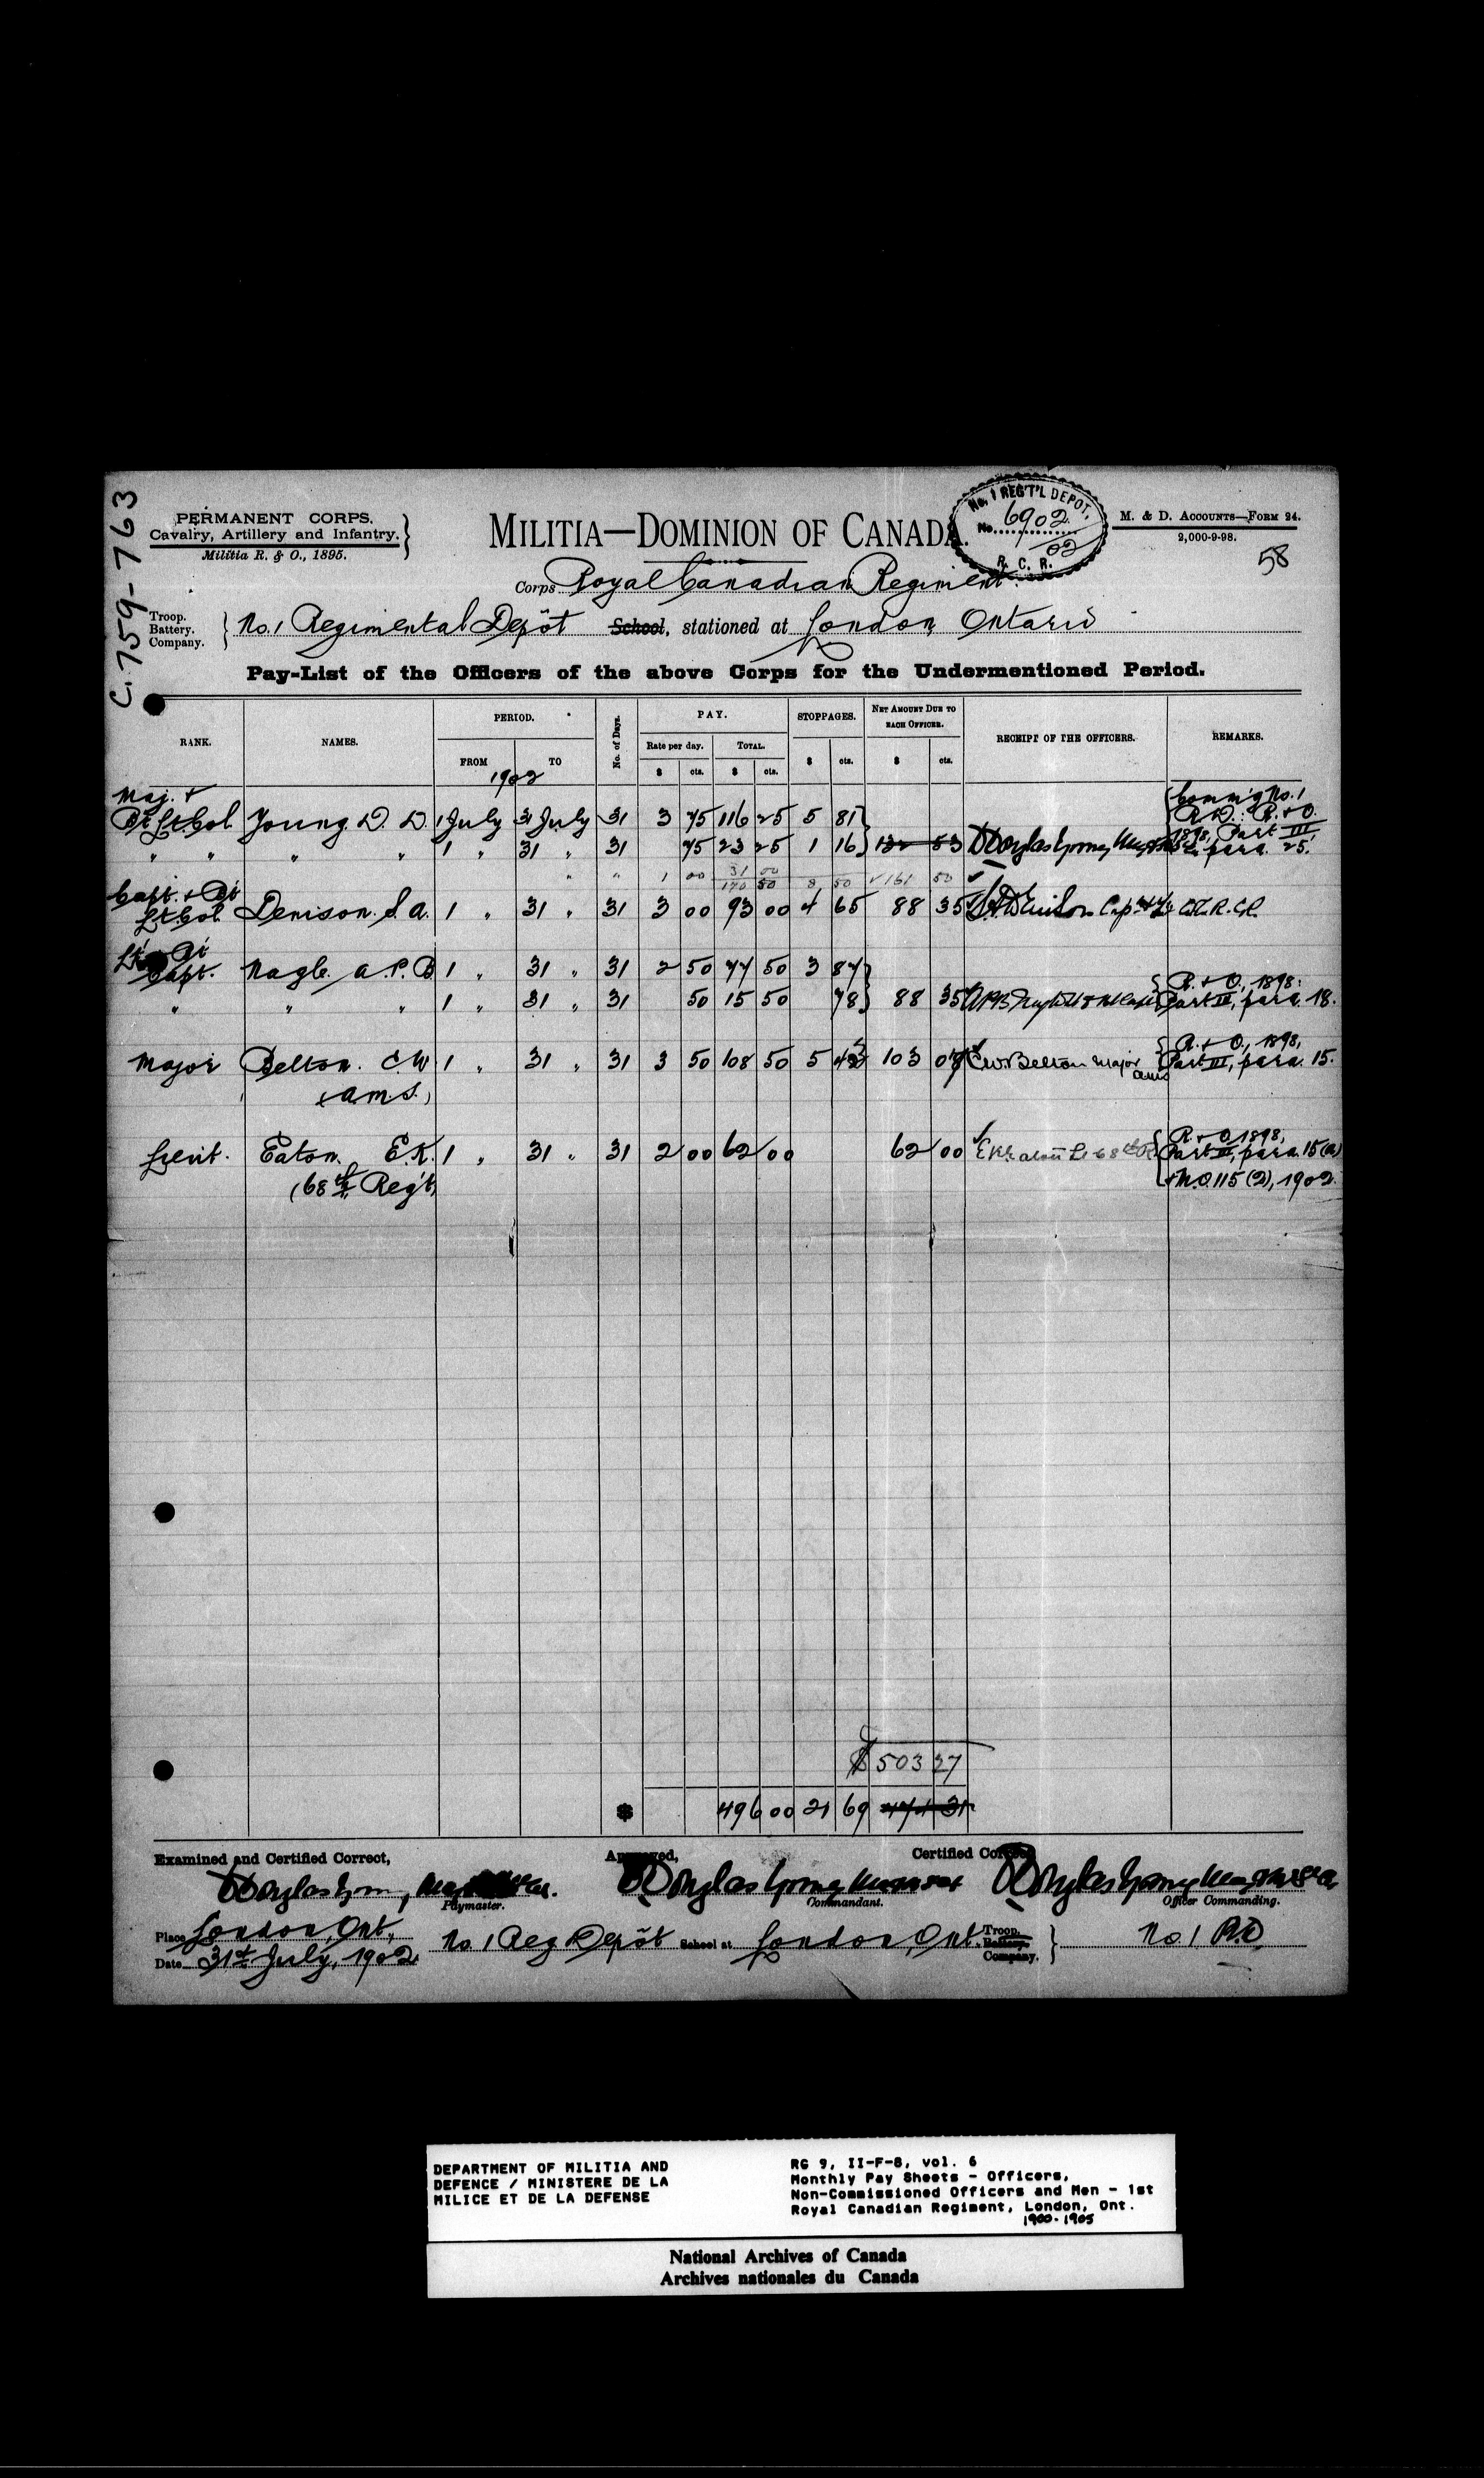 C. 759-763
PERMANENT CORPS.
Cavalry, Artillery and Infantry.
Militia R. & O., 1895.
MILITIA—DOMINION OF CANADA.
No. 1 REG'T'L DEPOT.
No. 6902
/02
R. C. R.
M. & D. ACCOUNTS—FORM 24.
2,000-9-98.
58
Corps Royal Canadian Regiment.
Troop.
Battery.
Company.
No. 1 Regimental Depôt School, stationed at London Ontario
Pay-List of the Officers of the above Corps for the Undermentioned Period.
RANK. NAMES. PERIOD. No. of Days. PAY. STOPPAGES. NET AMOUNT DUE TO EACH OFFICER. RECEIPT OF THE OFFICERS. REMARKS.
FROM TO Rate per day. TOTAL.
$ cts. $ cts. $ cts. $ cts.
1902
Maj. + Comm'g No. 1
Bt Lt Col. Young. D. D. 1 July 31 July 31 3 75 116 25 5 81 R.D.: R. + O.
" " " " 1 " 31 " 31 75 23 25 1 16 132 53 Douglas Young 1898, Part III, para. 25.
" " 1 00 31 00
170 50 8 50 161 50
Capt. + Bt
Lt. Col. Denison. S. A. 1 " 31 " 31 3 00 93 00 4 65 88 35 R.C.R.
Lt Bt
Capt. Nagle. A. P. B 1 " 31 " 31 2 50 77 50 3 87
" " " 1 " 31 " 31 50 15 50 78 88 35 R. + O., 1898: Part III, para. 18.
Major Belton. C W 1 " 31 " 31 3 50 108 50 5 43 103 07 C.W. Belton Major AMS R. + O., 1898, Part III, para. 15.
(A.M.S.)
Lieut. Eaton. E. K. 1 " 31 " 31 2 00 62 00 62 00 E K Eaton Lt 68th R. R. + O 1898, Part III, para. 15 (a)
(68th Reg't) + M.O. 115 (2), 1902.
$ 503 27
$ 496 00 21 69 474 31
Examined and Certified Correct, Approved, Certified Correct,
Douglas Young Douglas Young Douglas Young
Paymaster. Commandant. Officer Commanding.
Place London, Ont., No 1 Reg Depôt School at London, Ont. Troop. Battery. Company. No. 1 R.D.
Date 31st July, 1902
DEPARTMENT OF MILITIA AND
DEFENCE / MINISTERE DE LA
MILICE ET DE LA DEFENSE
RG 9, II-F-8, vol. 6
Monthly Pay Sheets - Officers,
Non-Commissioned Officers and Men - 1st
Royal Canadian Regiment, London, Ont.
1900-1905
National Archives of Canada
Archives nationales du Canada